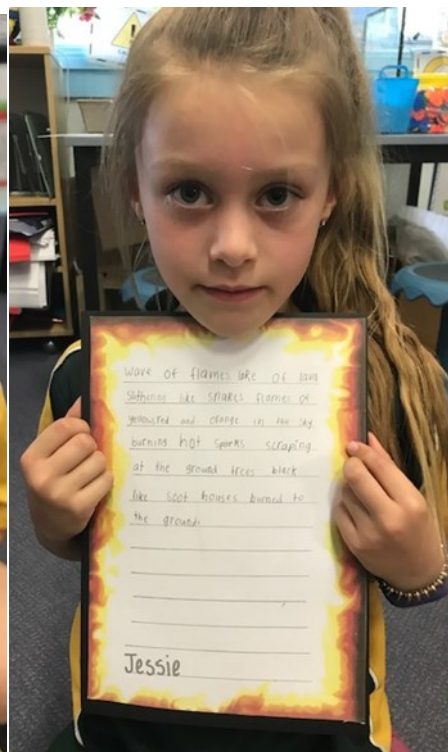 wave of flames lake of lava
Slithering like snakes flames of
yellow,red and orange in the sky
burning hot sparks scraping
at the ground trees black
like soot houses burned to
the ground.
Jessie